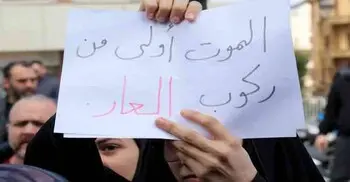 الموت أولى من
ركوب العار